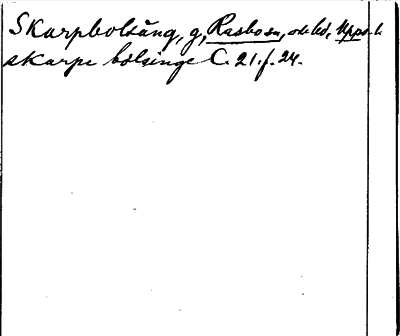 Skarpbolsäng, g, Rasbo sn, o. hd, Upps. l.
skarpe bolsinge C. 21. f. 24.